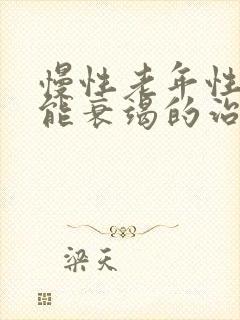 慢性老年性
能衰竭的治
梁天